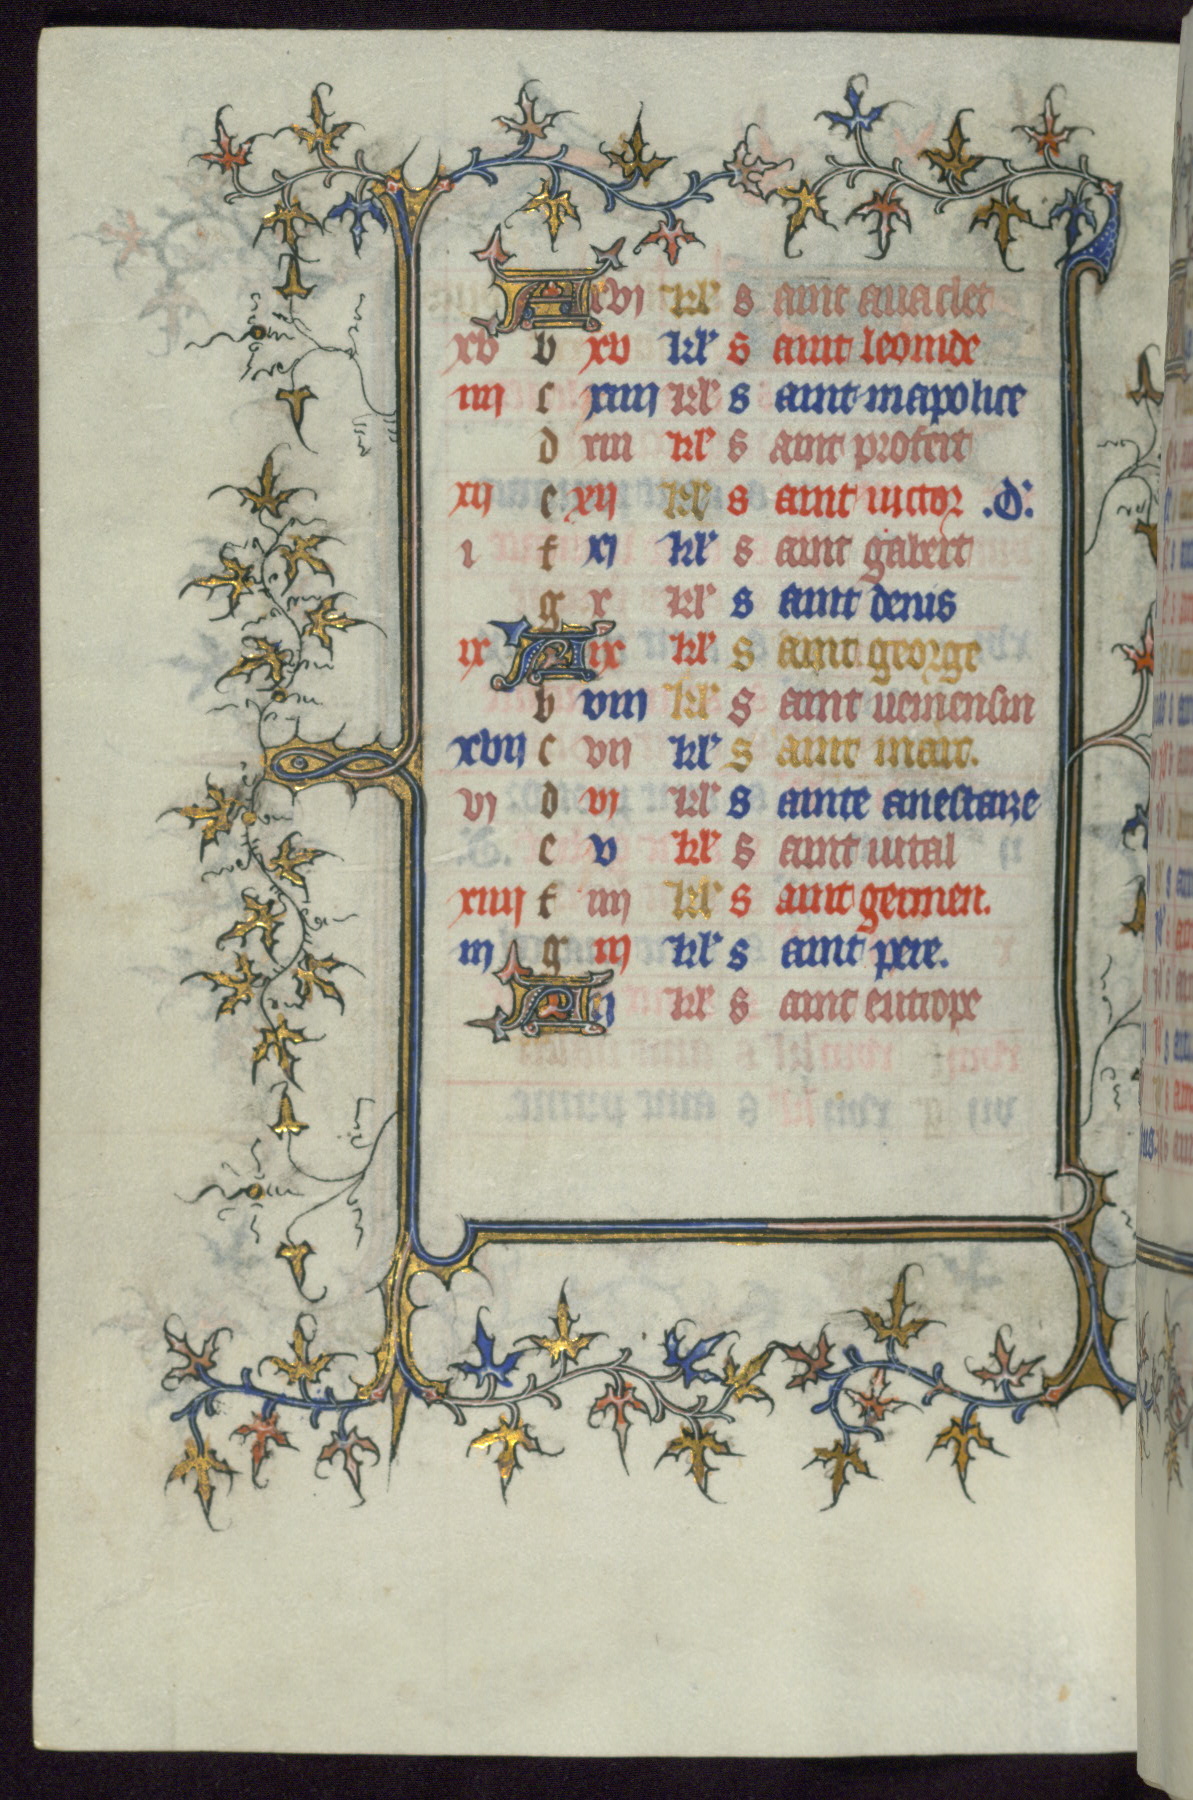 A xvi kl' s aint anaclet
xv b xv kl' s aint leonide
iiii c xiiii kl' s aint mapolice
d xiii kl' s aint profeit
xii e xii kl' s aint uictor .D'.
i f xi kl' s aint gabert
g x kl' s aint denis
ix A ix kl' s aint george
b viii kl' s aint uemensin
xvii c vii kl' s aint marc.
vi d vi kl' s ainte anestaize
e v kl' s aint uital
xiiii f iiii kl' s aint germen.
iii g iii kl' s aint pere.
A ii kl' s aint eutrope